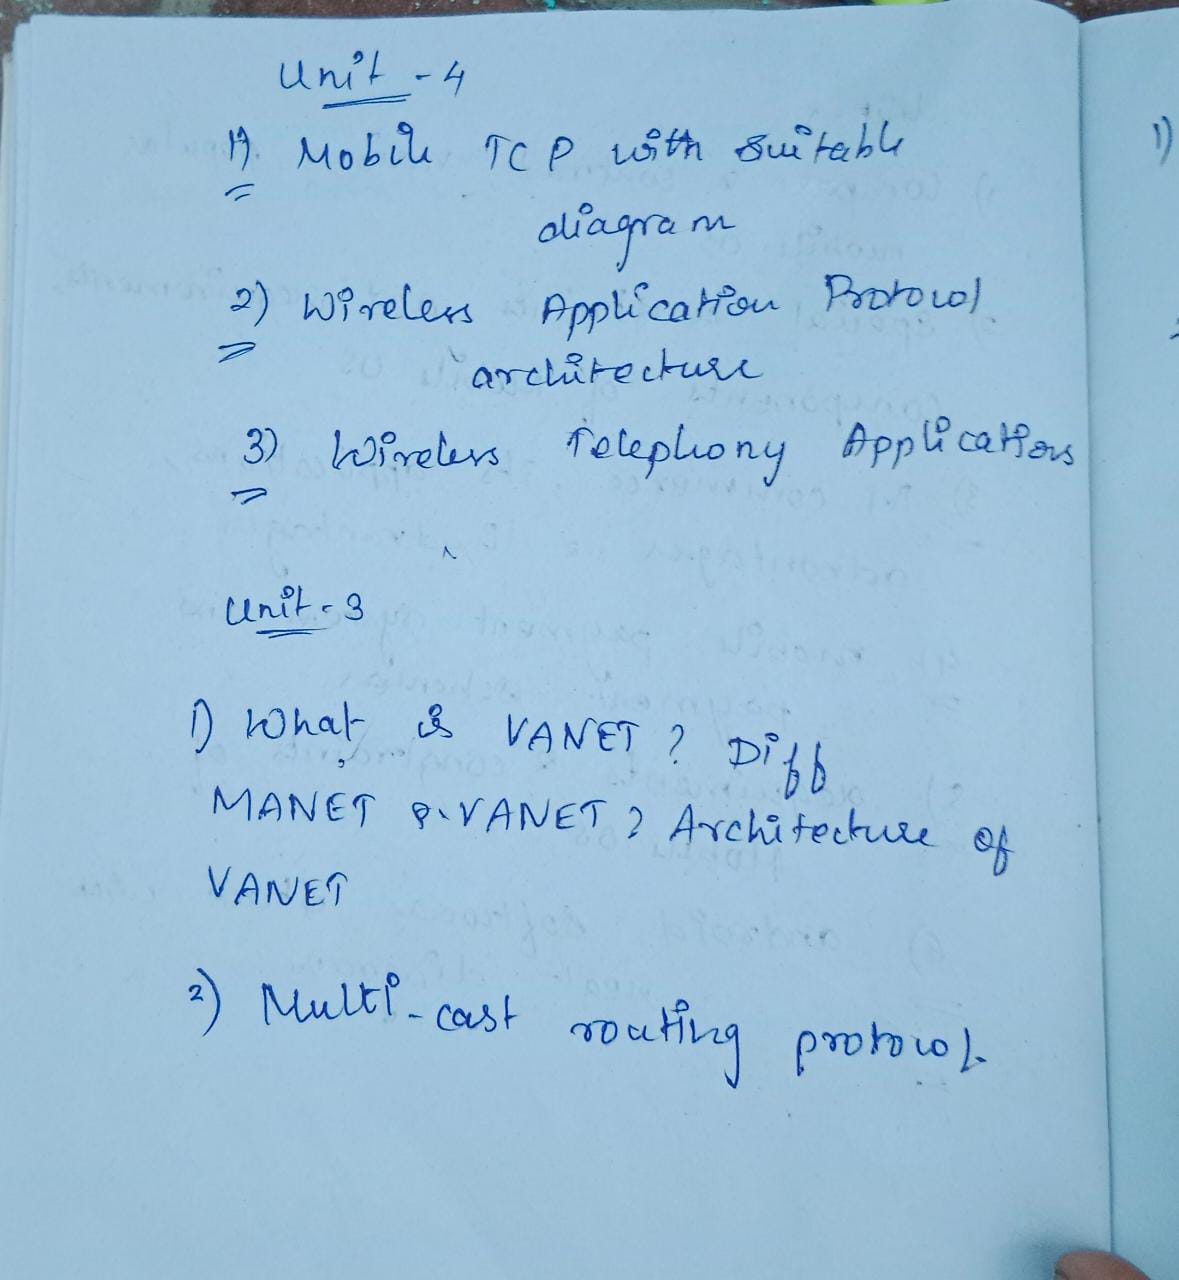 Unit - 4
1) Mobile TCP with suitable
diagram
2) Wireless Application Protocol
architecture
3) Wireless Telephony Applications
Unit - 3
1) What is VANET ? Diff
MANET & VANET ? Architecture of
VANET
2) Multi-cast routing protocol.
1)